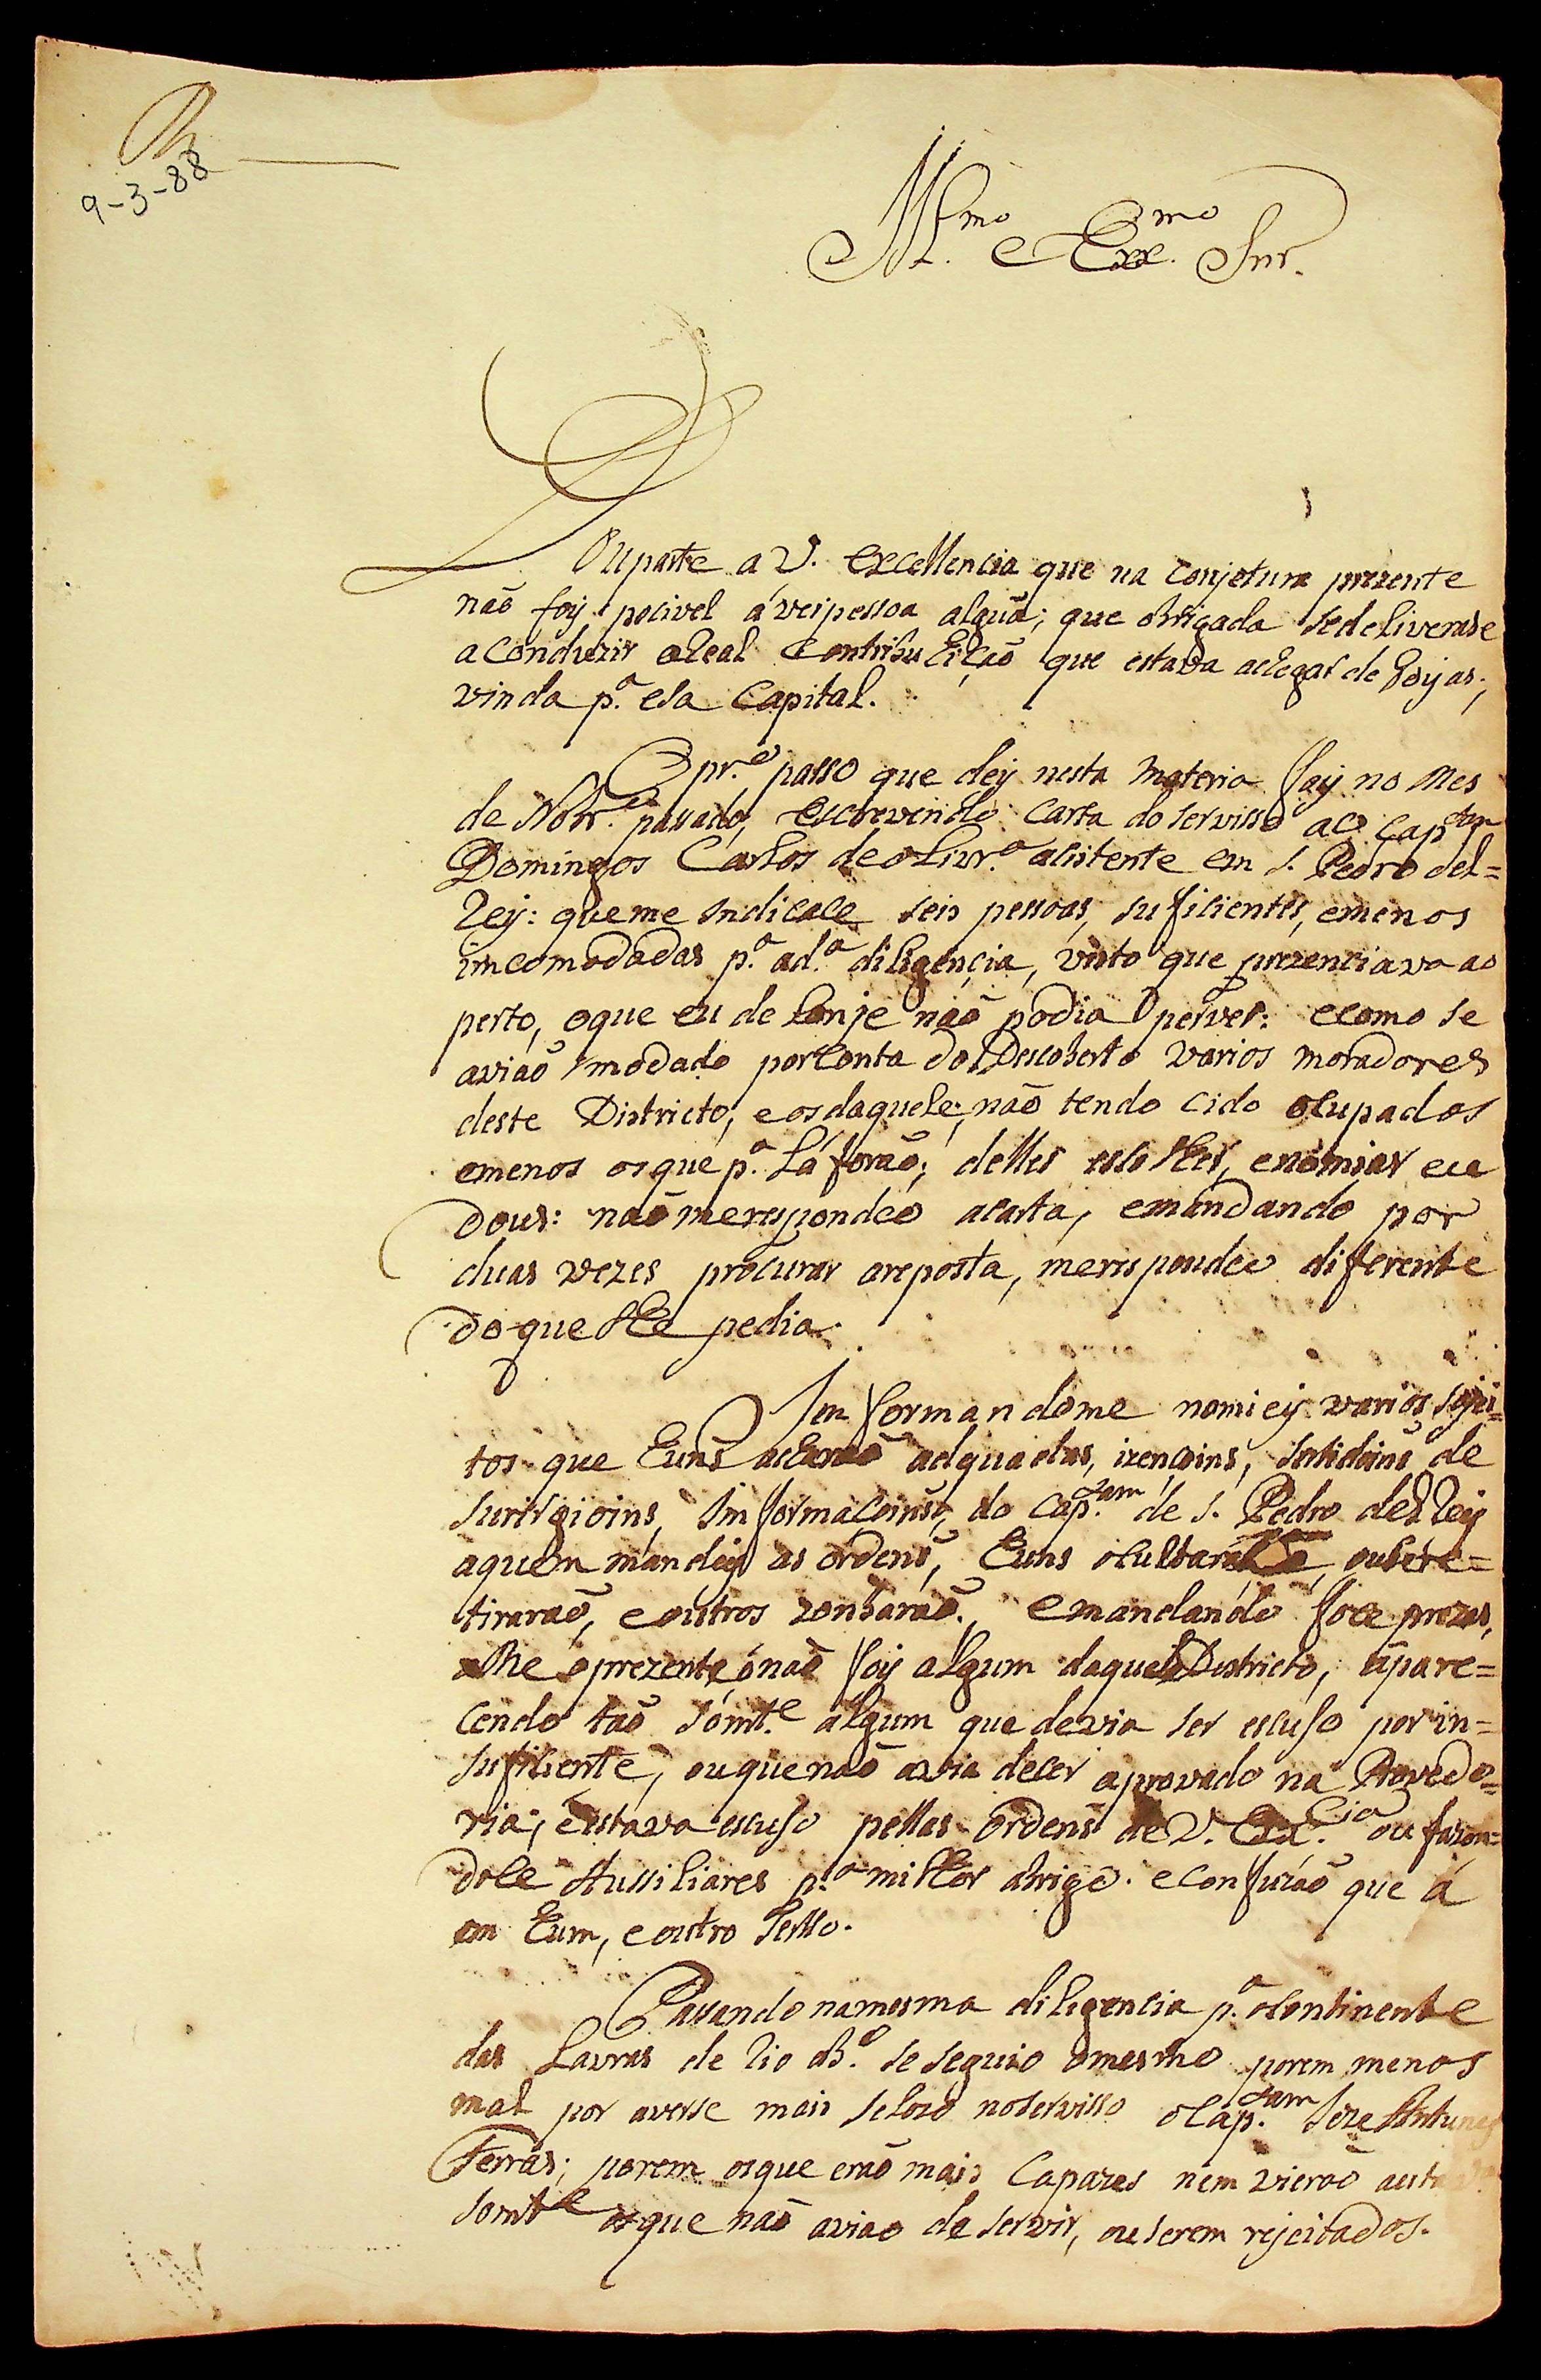 R
9-3-88
Ill.mo e Exe.mo Snr.
Dou parte a V. Excellencia que na Conjetura prezente
não foy pocivel áver pessoa algua; que obrigada sedeliverase
aConduzir aReal Contribuhição que estava achegar de Goyas;
vinda p.a esa Capital.
O pr.o passo que dey nesta materia foy no Mes
de Nobr.o passado, escrevendo Carta do servisso ao Cap.tam
Domingos Carlos deoLivr.a acistente em S. Pedro del=
Rey: queme Indicace seis pessoas, suficientes, emenos
imcomodadas p.a ad.a diligençia, visto que prezenciava ao
perto, oque eu de Lonje não podia perver: ecomo se
avião modado porConta do Descoberto varios moradores
deste Districto, eosdaquele, não tendo cido ocupados
emenos osque p.a Lá forão; delles escolher, enomiar eu
dous: não merespondeo acarta, emandando por
duas vezes procurar areposta, merespondeo diferente
do que lhe pedia.
Im formandome nomiey varios sojei=
tos que huns acharão adquadas, izençoins, sertidoins de
surirgioins, Imformacoins, do Cap.tam de S. Pedro delRey
aquem mandey as ordens, huns ocultarão, ouse re=
tirarão, eoutros zonbarão. emandando foce prezos,
athe oprezente ónão foy algum daquele Districto, apare=
cendo tão sómt.e algum que devia ser escuso por in=
suficiente, ouque não avia decer aprovado na Provedo=
ria; eestava escuso pellas ordens de V. Ex.cia ou fazen=
doce Aussiliares p.a milhor abrigo. econfuzão que á
em hum, eoutro Tersso.
Passando namesma diligencia p.a oContinente
das Lavras de Rio ab.o se seguio omesmo porem menos
mal por averse mais Selozo noservisso oCap.tam Joze Antunes
Ferrás; porem osque erão mais Capazes nem vierão
somt.e osque não avião de servir, ou serem rejeitados.